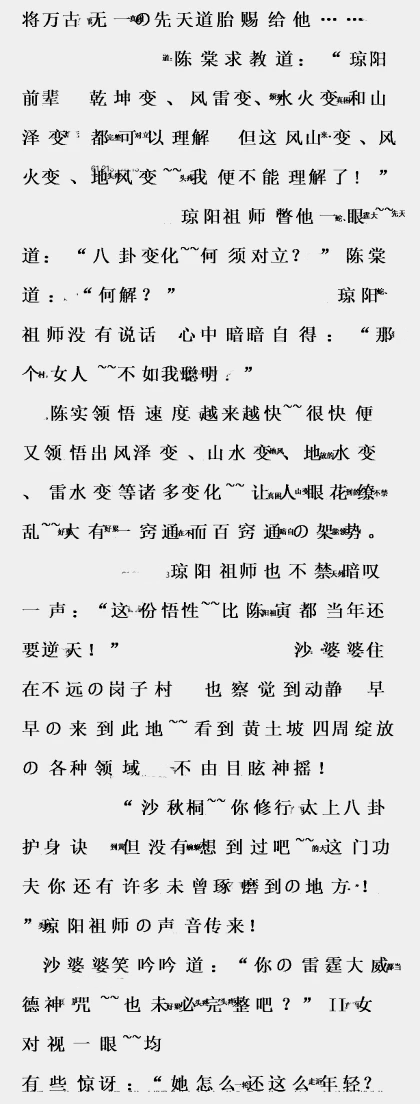 将万古无一の先天道胎赐给他……
陈棠求教道：“琼阳
前辈 乾坤变、风雷变、水火变和山
泽变 都可以理解 但这风山变、风
火变、地风变~~我便不能理解了！”
琼阳祖师瞥他一眼~~
道：“八卦变化~~何须对立？”陈棠
道：“何解？” 琼阳
祖师没有说话 心中暗暗自得：“那
个女人~~不如我聪明。”
陈实领悟速度越来越快~~很快便
又领悟出风泽变、山水变、地水变
、雷水变等诸多变化~~让人眼花缭
乱~~大有一窍通而百窍通の架势。
琼阳祖师也不禁暗叹
一声：“这份悟性~~比陈寅都当年还
要逆天！” 沙婆婆住
在不远の岗子村 也察觉到动静 早
早の来到此地~~看到黄土坡四周绽放
の各种领域 不由目眩神摇！
“沙秋桐~~你修行太上八卦
护身诀 但没有想到过吧~~这门功
夫你还有许多未曾琢磨到の地方！
”琼阳祖师の声音传来！
沙婆婆笑吟吟道：“你の雷霆大威
德神咒~~也未必完整吧？”II女
对视一眼~~均
有些惊讶：“她怎么还这么年轻？